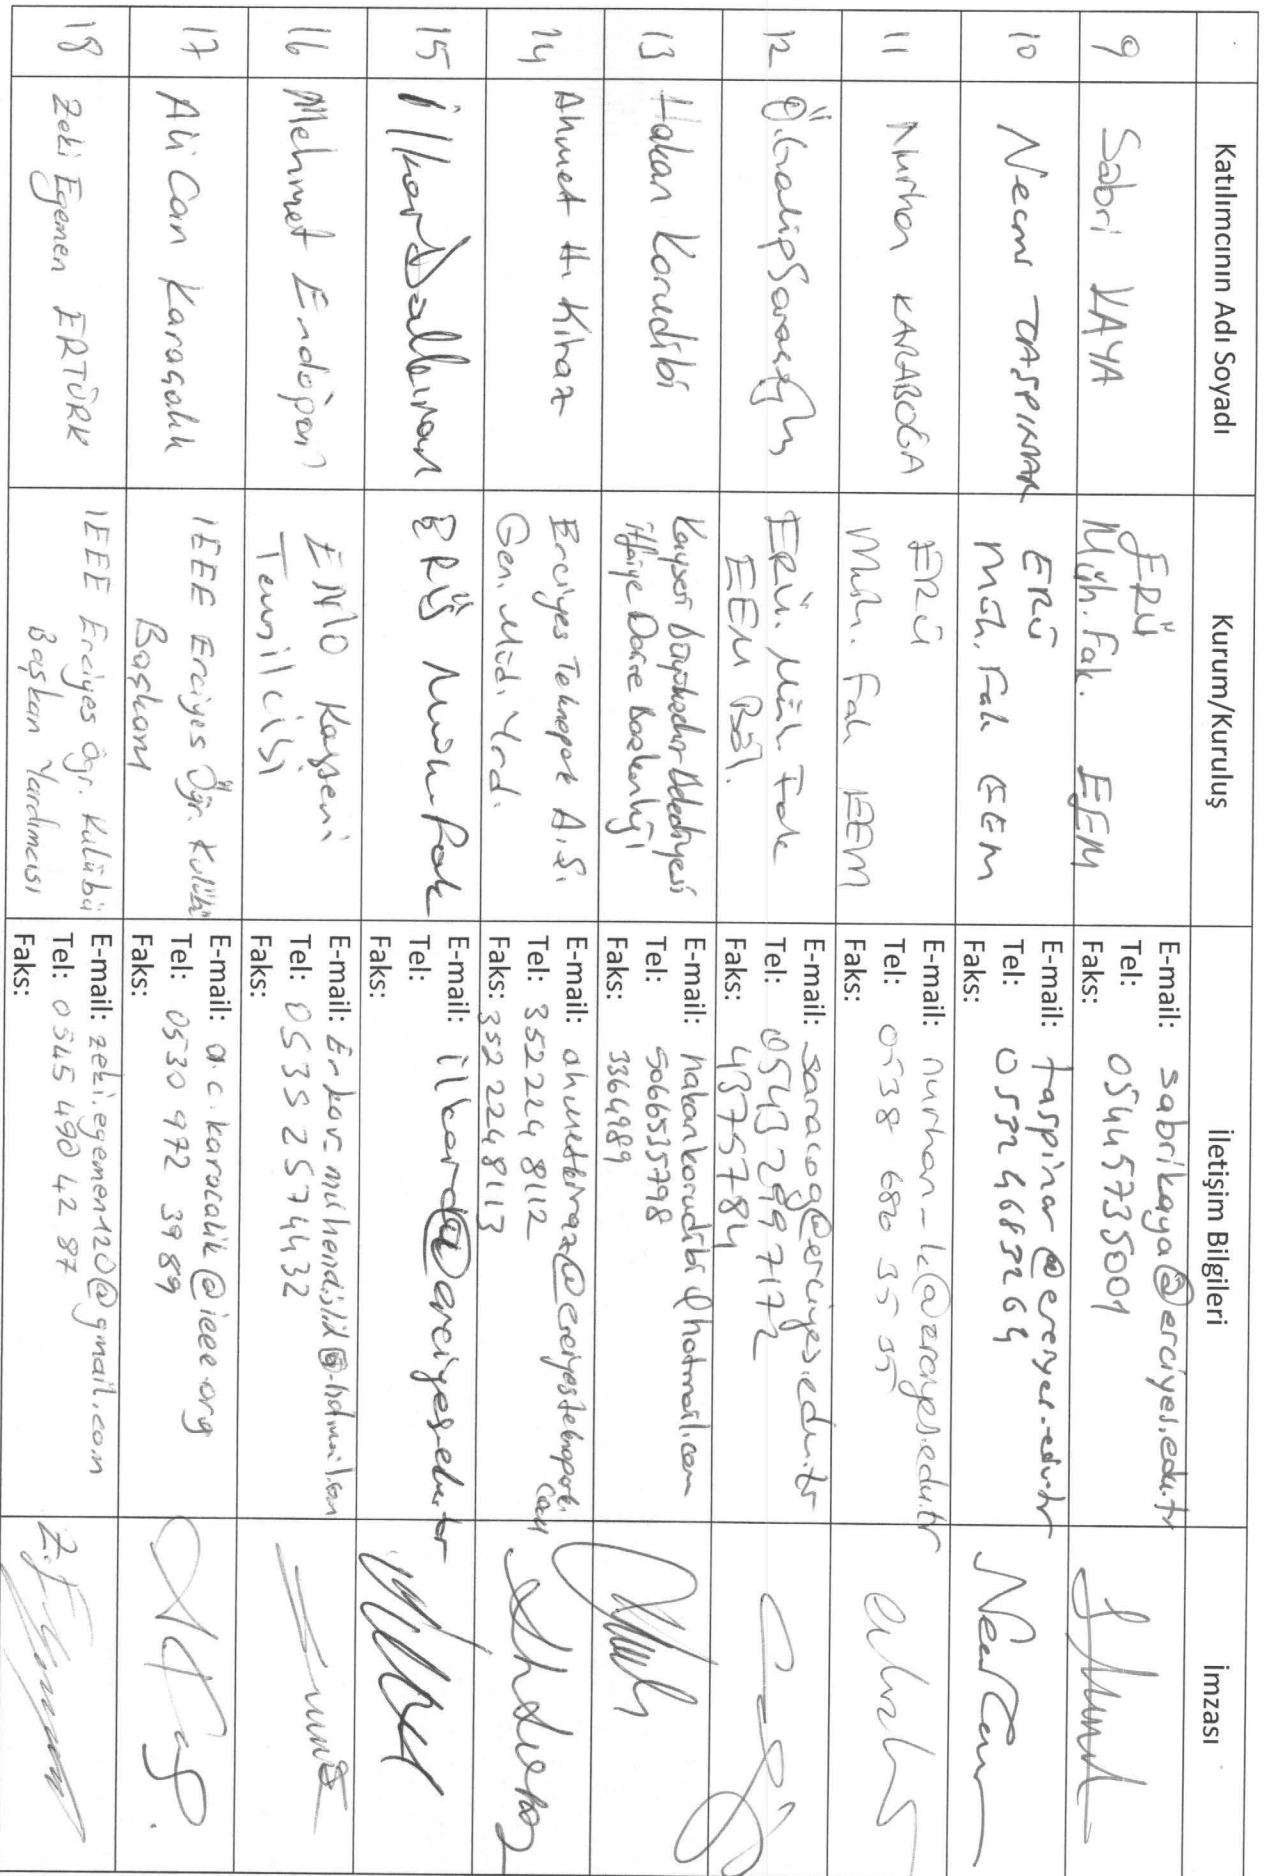 Katılımcının Adı Soyadı
Kurum/Kuruluş
İletişim Bilgileri
İmzası
9
Sabri KAYA
ERÜ
Müh. Fak. EEM
E-mail: sabrikaya@erciyes.edu.tr
Tel: 05445735001
Faks:
10
Necmi TAŞPINAR
ERÜ
Müh. Fak EEM
E-mail: taspinar@erciyes.edu.tr
Tel:
Faks:
11
Nurhan KARABOĞA
ERÜ
Müh. Fak EEM
E-mail: nurhan_k@erciyes.edu.tr
Tel: 0538 680 35 35
Faks:
12
Ö. Galip Saraçoğlu
ERÜ. Müh Fak
EEM Böl.
E-mail: saracog@erciyes.edu.tr
Tel: 0543 2897172
Faks: 4375784
13
Hakan Korudibi
Kayseri Büyükşehir Belediyesi
İtfaiye Daire Başkanlığı
E-mail: hakankorudibi@hotmail.com
Tel: 5066535798
Faks: 3364989
14
Ahmet H. Kiraz
Erciyes Teknopark A.Ş.
Gen. Müd. Yrd.
E-mail: ahmetkiraz@erciyesteknopark.com
Tel: 352224 8112
Faks: 352 224 8113
15
İlker Dalkıran
ERÜ Müh. Fak
E-mail: ilkerd@erciyes.edu.tr
Tel:
Faks:
16
Mehmet Erdoğan
EMO Kayseri
Temsilcisi
E-mail:
Tel: 0535 2574432
Faks:
17
Ali Can Karaçalık
IEEE Erciyes Öğr. Kulübü
Başkanı
E-mail: a.c.karacalik@ieee.org
Tel: 0530 972 3989
Faks:
18
Zeki Egemen ERTÜRK
IEEE Erciyes Öğr. Kulübü
Başkan Yardımcısı
E-mail: zeki.egemen120@gmail.com
Tel: 0545 490 42 87
Faks: